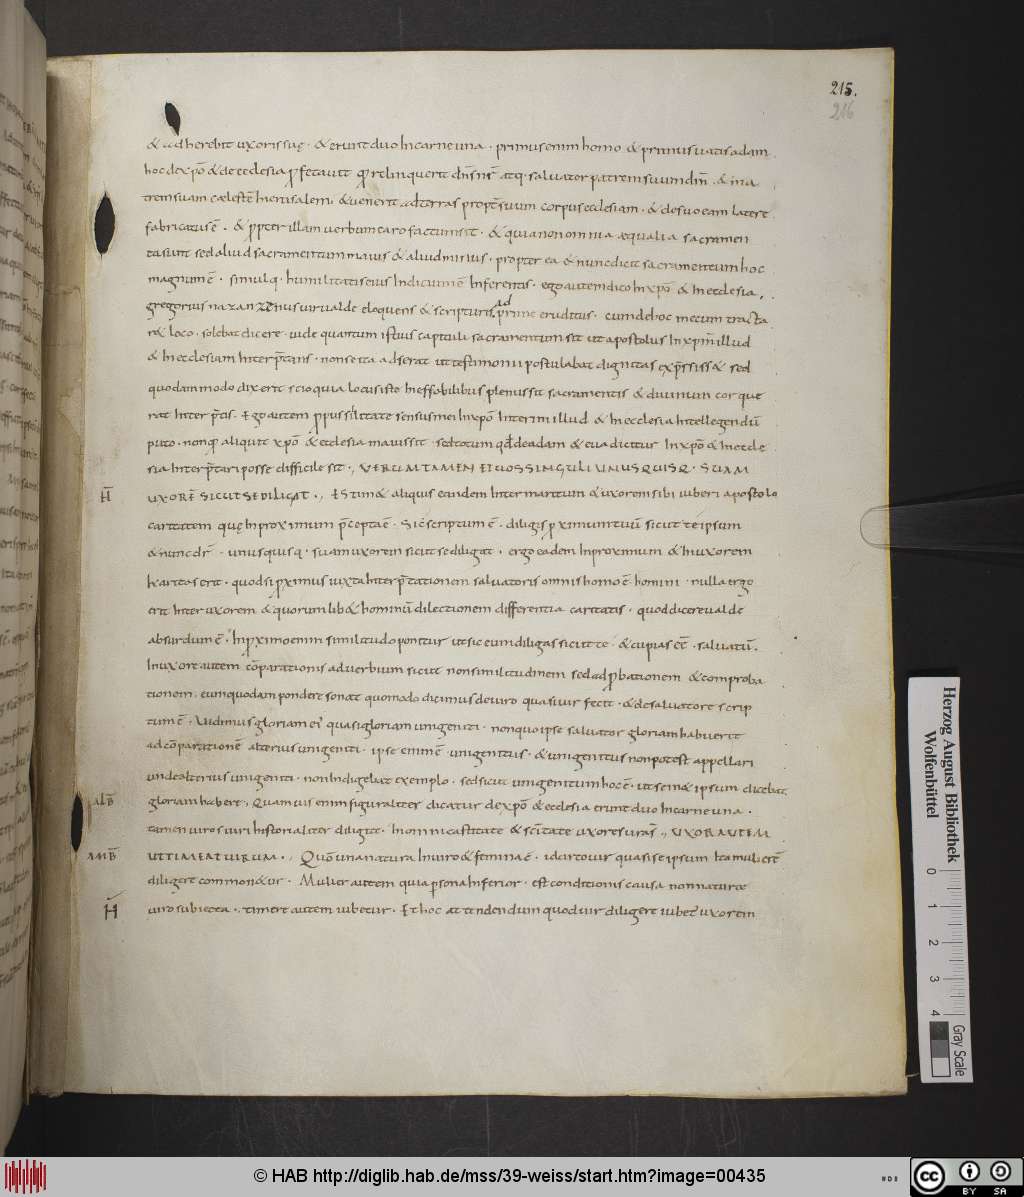 215.
216
& adherebit uxori suę · & erunt duo In carne una · primus enim homo & primus uatis adam
hoc de xpō & de ecclesia profetauit quod relinquerit dn̄s nr̄ atq; saluator patrem suum dm̄ · & ma
trem suam cælestē hierusalem · & uenerit ad terras propt̄ suum corpus ecclesiam · & de suo eam latere
fabricatus ē · & propter illam uerbum caro factum sit · & quia non omnia æqualia sacramen
ta sunt sed aliud sacramentum maius & aliud minus · propter ea & nunc dicit sacramentum hoc
magnum ē · simulq; humilitatis eius Indicium ē Inferentis · ego autem dico In xpō & In ecclesia ·
gregorius nazanzenus uir ualde eloquens & scripturis ad prime eruditus · cum de hoc mecum tracta
r& loco · solebat dicere · uide quantum istius capituli sacramentum sit ut apostolus In xpm̄ illud
& In ecclesiam Interp̄tans · non se ita adserat ut testimonii postulabat dignitas exp̄ssiss& sed
quodammodo dixerit scio quia locus iste Ineffabilibus plenus sit sacramentis & diuinum cor que
rat Interp̄tis · Ego autem p pussillitate sensus mei In xpō Interim illud & In ecclesia Intellegendū
puto · non quo aliquit xpō & ecclesia maius sit · sed totum quod de adam & eua dicitur In xpō & In eccle
sia Interp̄tari posse difficile sit · UERUM TAMEN ET UOS SINGULI UNUSQUISQ · SUAM
H̄ UXORĒ SICUT SE DILIGAT · Estim& aliquis eandem Inter maritum & uxorem sibi iuberi apostolo
caritatem quę In proximum p̄cepta ē · Sic scriptum ē · diliges proximum tuū sicut te ipsum
& nunc dr̄ · unusquisq; suam uxorem sicut se diligat · ergo eadem In proximum & In uxorem
karitas erit · quod si proximus iuxta Interp̄tationem saluatoris omnis homo ē homini · nulla ergo
erit Inter uxorem & quorumlib& hominū dilectionem differentia caritatis · quod dicere ualde
absurdum ē · In proximo enim similitudo ponitur ut sic eum diligas sicut te · & cupias eē · saluatū ·
In uxore autem cōparationis aduerbium sicut non similitudinem sed adprobationem & comproba
tionem · cum quodam pondere sonat quomodo dicimus de uiro quasi uir fecit · & de saluatore scrip
tum ē · Uidimus gloriam ei' quasi gloriam unigeniti · non quo ipse saluator gloriam habuerit
ad cōparationē alterius unigeniti · ipse enim ē unigenitus · & unigenitus non potest appellari
unde alterius unigeniti · non Indigebat exemplo · sed sicut unigenitum hoc ē · ut sem& ipsum dicebat
ALB̄ gloriam habere · Quamuis enim figuraliter dicatur de xpō & ecclesia erunt duo In carne una ·
tamen uiros uiri historialiter diligite · In omni castitate & sc̄itate uxores uras · UXOR AUTEM
AMB̄ UT TIMEAT UIRUM · Quō una natura In uiro & femina ē · idcirco uir quasi se ipsum
diligere common&ur · Mulier autem quia persona Inferior · est conditionis causa non naturae
H̄ uiro subiecta · timere autem iubetur · Et hoc attendendum quod uir diligere iubet' uxorem
Herzog August Bibliothek
Wolfenbüttel
0 1 2 3 4
Gray Scale
© HAB http://diglib.hab.de/mss/39-weiss/start.htm?image=00435
cc BY SA